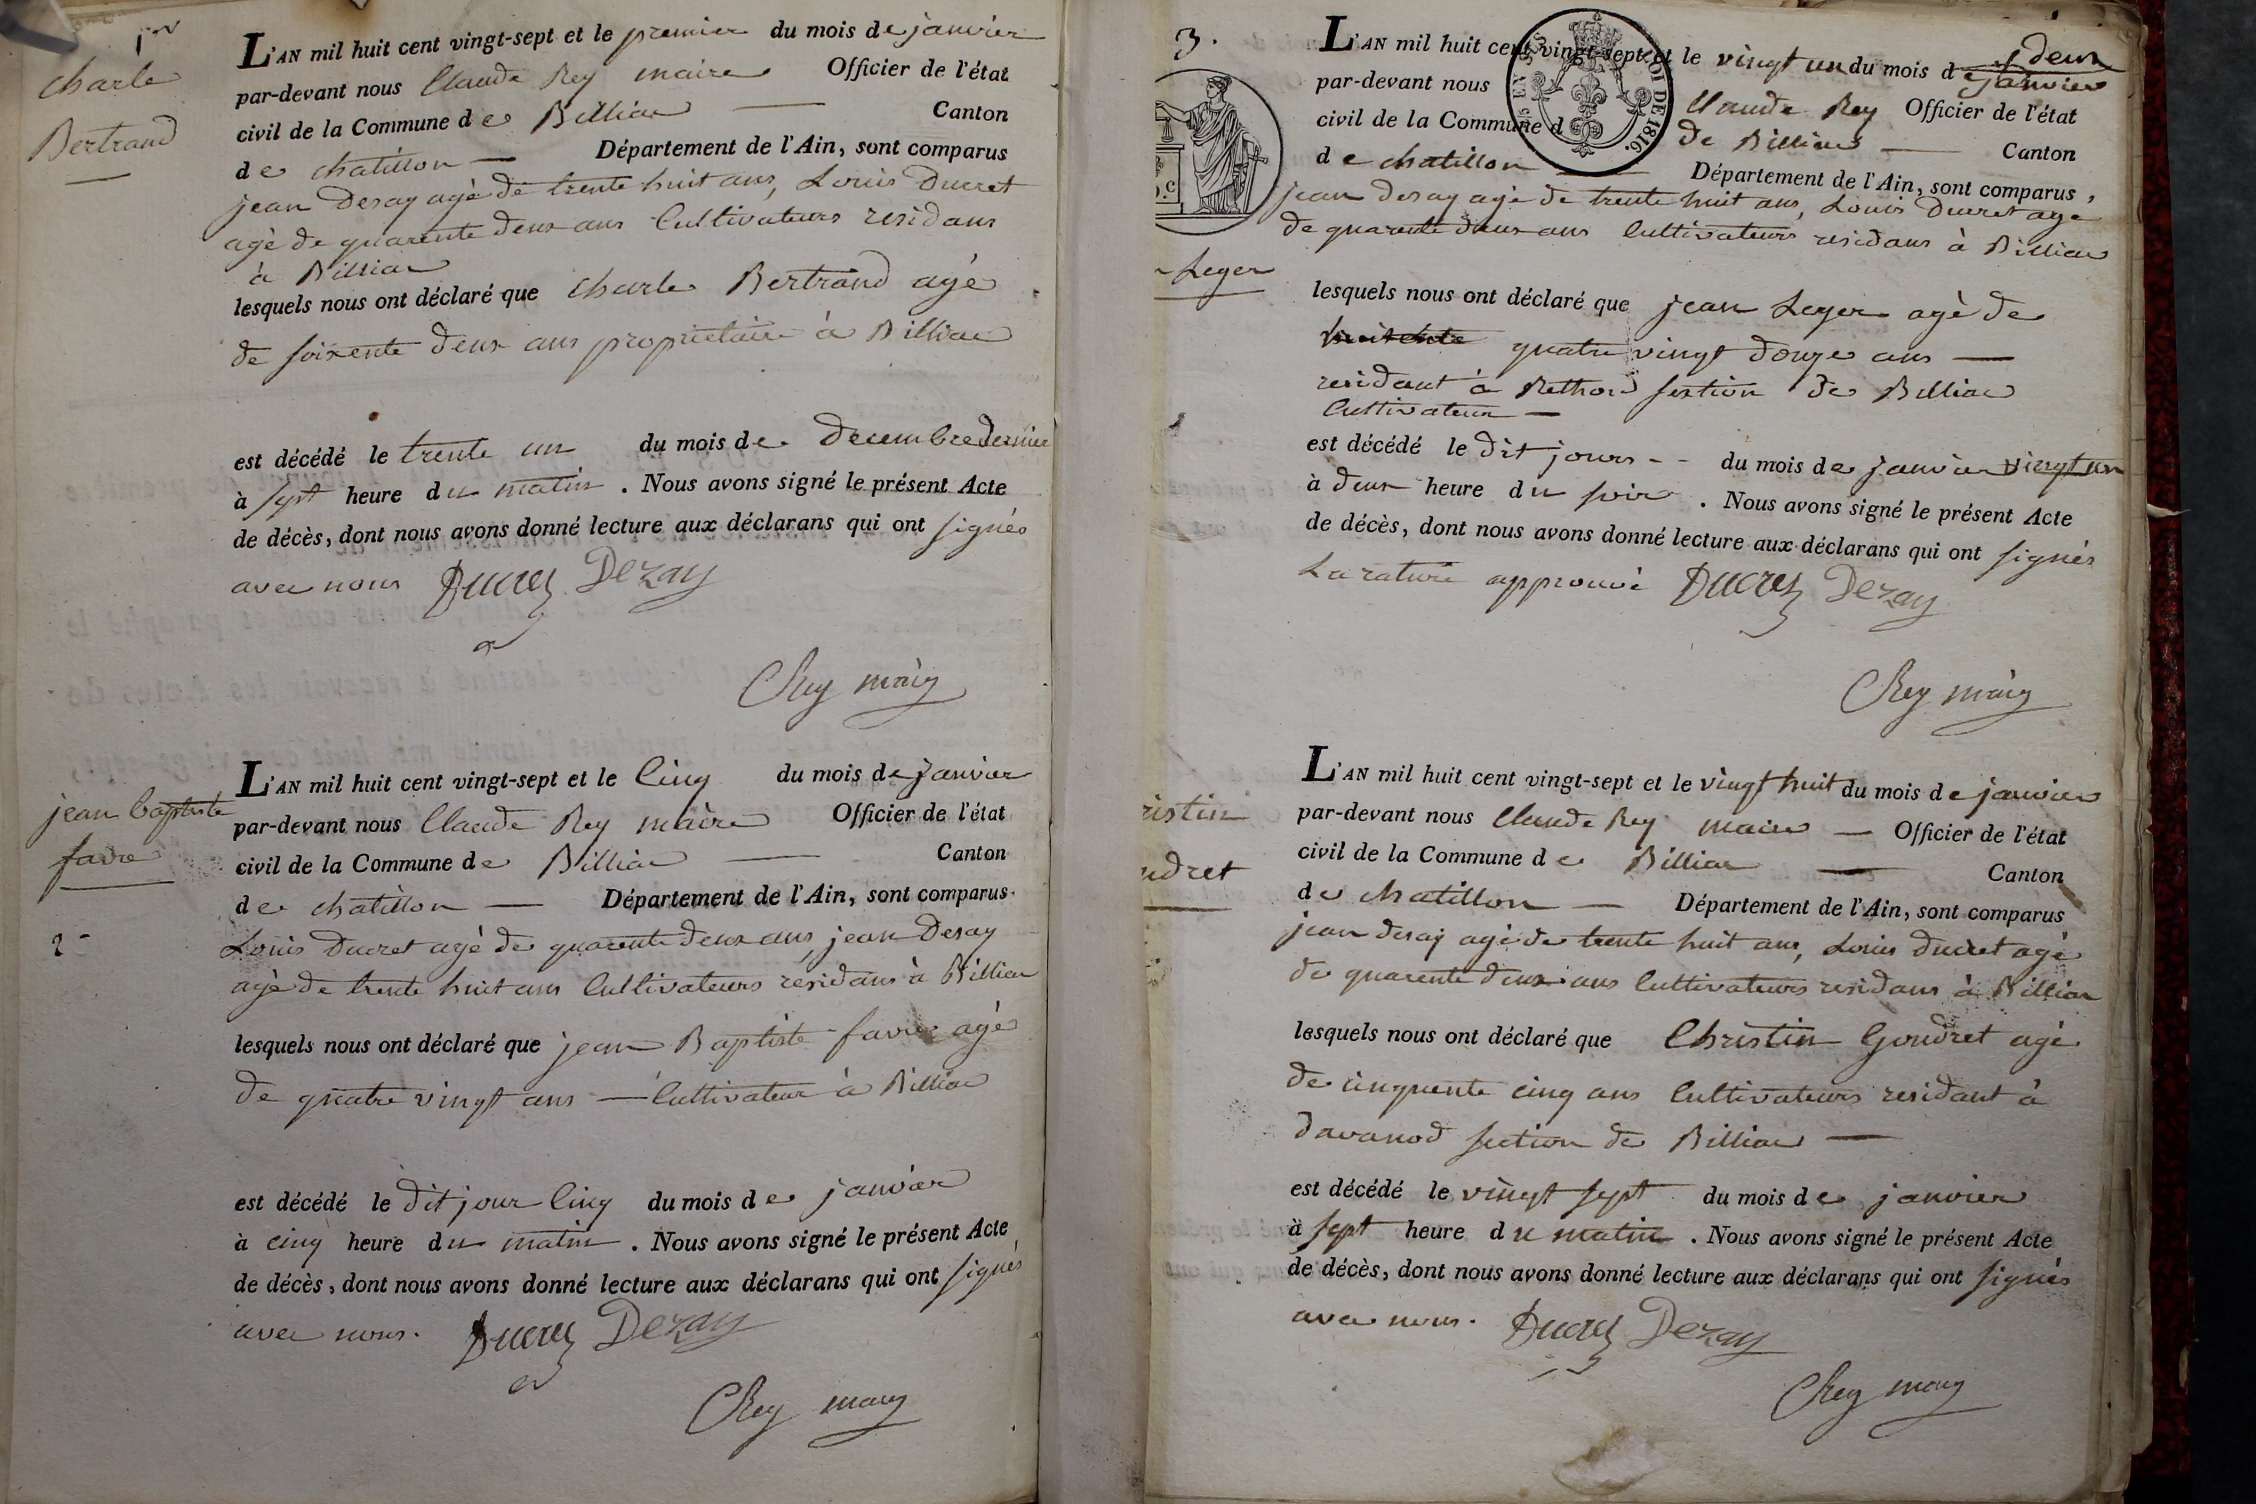 1er
charle
Bertrand
L'AN mil huit cent vingt-sept et le premier du mois de janvier
par-devant nous Claude Rey maire Officier de l'état
civil de la Commune de Billiac Canton
de chatillon Département de l'Ain, sont comparus
jean Desay agé de trente huit ans, Louis Ducret
agé de quarente deux ans Cultivateurs residans
à Billiac
lesquels nous ont déclaré que charle Bertrand agé
de soixente deux ans proprietaire à Billiac
est décédé le trente un du mois de decembre dernier
à sept heure du matin. Nous avons signé le présent Acte
de décès, dont nous avons donné lecture aux déclarans qui ont signés
avec nous Ducret Dezay
CRey maire
jean baptiste
favre
2
L'AN mil huit cent vingt-sept et le Cinq du mois de janvier
par-devant nous Claude Rey maire Officier de l'état
civil de la Commune de Billiac Canton
de chatillon Département de l'Ain, sont comparus
Louis Ducret agé de quarente deux ans, jean Desay
agé de trente huit ans Cultivateurs residans à Billiac
lesquels nous ont déclaré que jean Baptiste favre agé
de quatre vingt ans Cultivateur à Billiac
est décédé le dit jour Cinq du mois de janvier
à cinq heure du matin. Nous avons signé le présent Acte
de décès, dont nous avons donné lecture aux déclarans qui ont signés
avec nous. Ducret Dezay
CRey maire
3.
L'AN mil huit cent vingt-sept et le vingt un du mois de janvier
par-devant nous Claude Rey Officier de l'état
civil de la Commune de Billiac Canton
de chatillon Département de l'Ain, sont comparus,
jean desay agé de trente huit ans, Louis Ducret agé
de quarente deux ans Cultivateurs residans à Billiac
Leger
lesquels nous ont déclaré que jean Leger agé de
quatre vingt douze ans
residant à Rethord section de Billiac
Cultivateur
est décédé le dit jours du mois de janvier vingt un
à deux heure du soir. Nous avons signé le présent Acte
de décès, dont nous avons donné lecture aux déclarans qui ont signés
La rature approuvé Ducret Dezay
CRey maire
ristin
udret
L'AN mil huit cent vingt-sept et le vingt huit du mois de janvier
par-devant nous Claude Rey maire Officier de l'état
civil de la Commune de Billiac Canton
de chatillon Département de l'Ain, sont comparus
jean desay agé de trente huit ans, Louis ducret agé
de quarente deux ans Cultivateurs residans à Billiac
lesquels nous ont déclaré que Christin Goudret agé
de cinquente cinq ans Cultivateurs residant à
davanod section de Billiac
est décédé le vingt sept du mois de janvier
à sept heure du matin. Nous avons signé le présent Acte
de décès, dont nous avons donné lecture aux déclarans qui ont signés
avec nous. Ducret Dezay
CRey maire